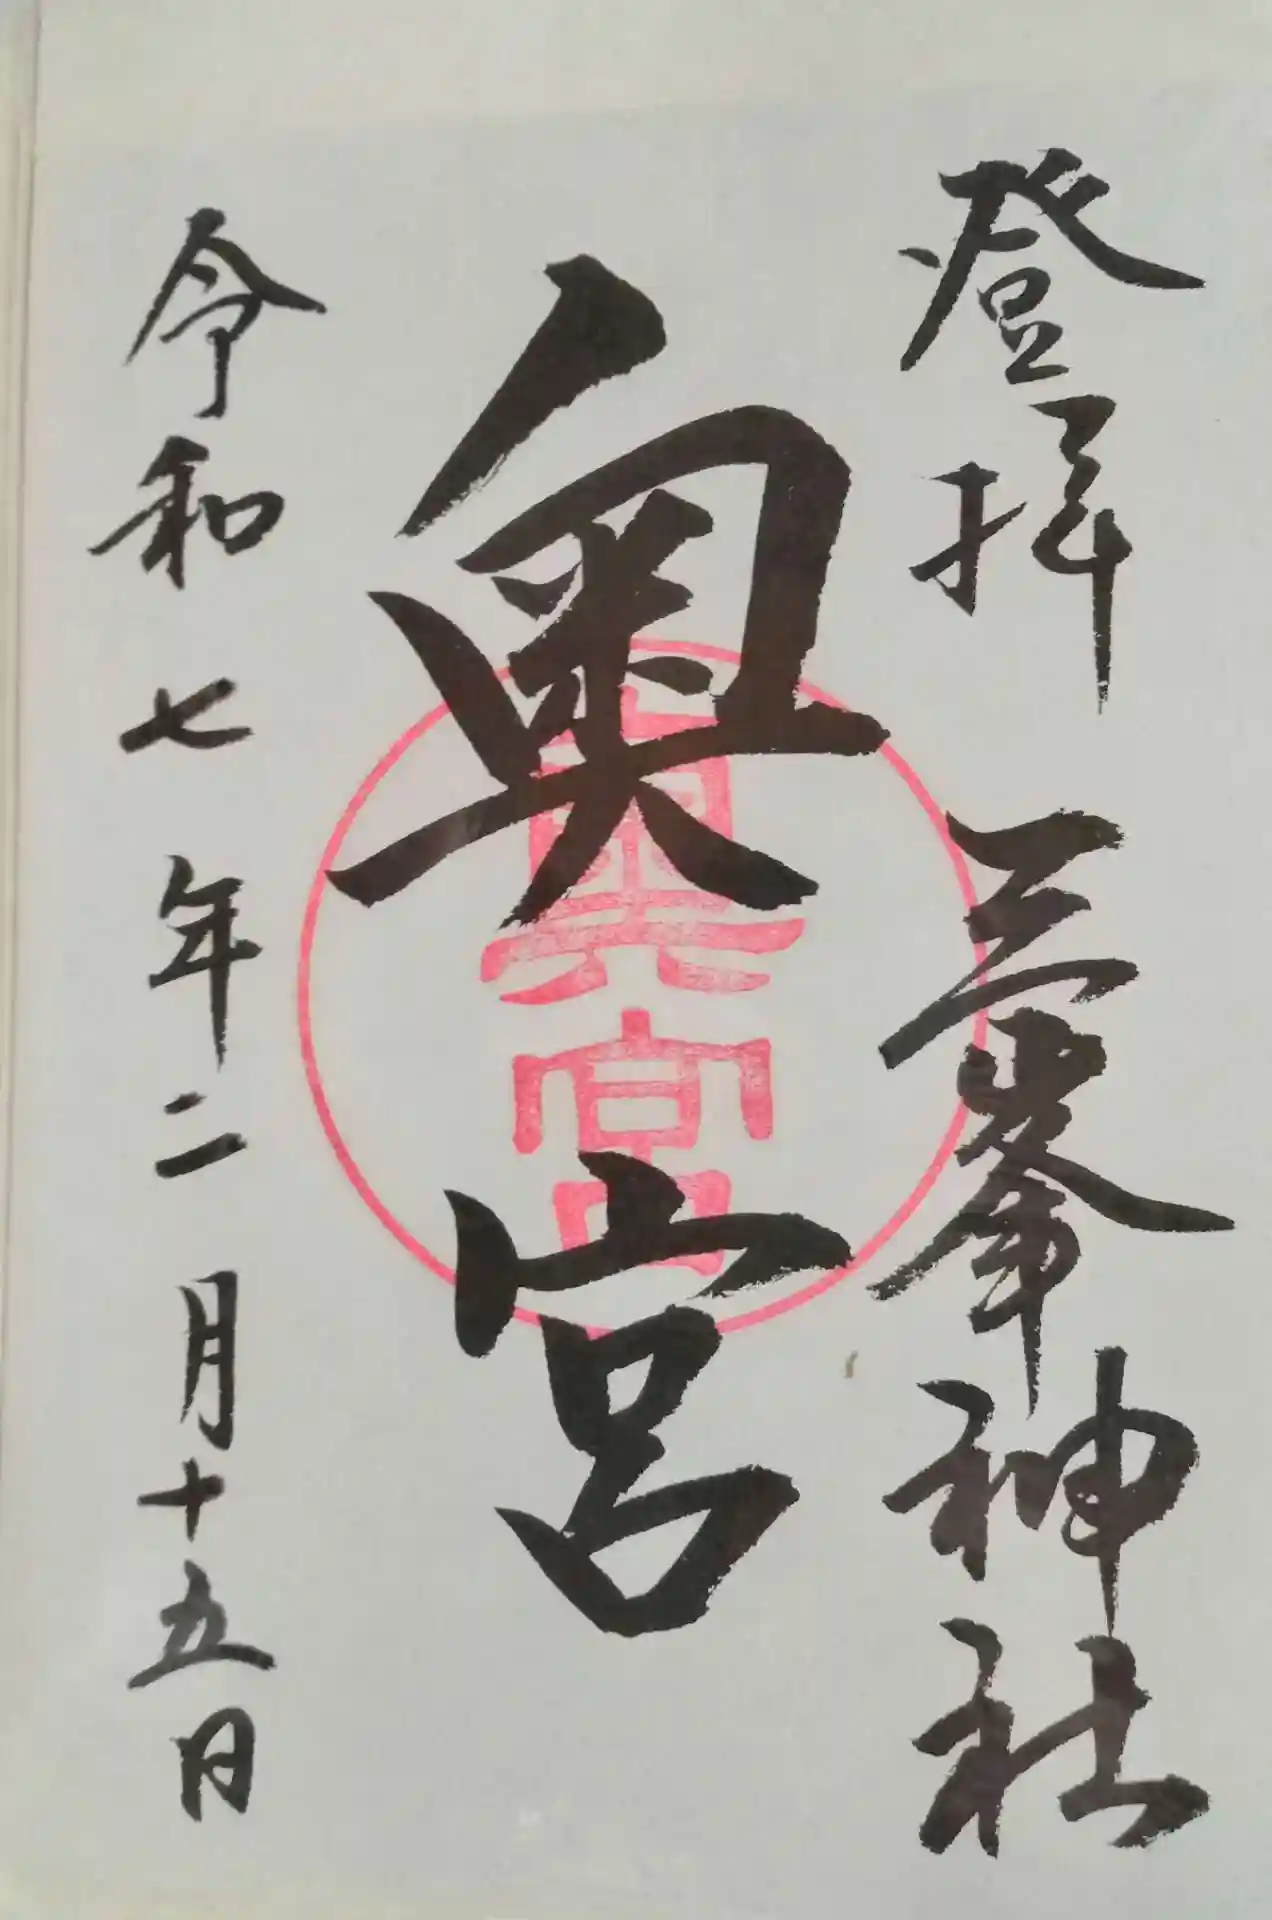 登拝 三峯神社
奥宮
奥宮
令和七年二月十五日